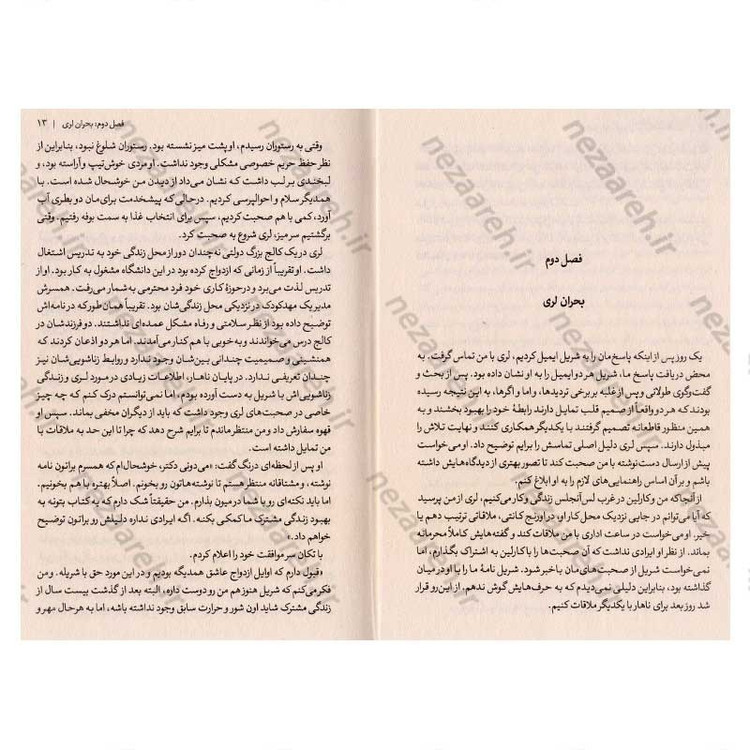 فصل دوم
بحران لری
یک روز پس از اینکه پاسخ‌مان را به شریل ایمیل کردیم، لری با من تماس گرفت. به
محض دریافت پاسخ ما، شریل هر دو ایمیل را به او نشان داده بود. پس از بحث و
گفت‌وگوی طولانی و پس از غلبه بر برخی تردیدها، و اما و اگرها، به این نتیجه رسیده
بودند که هر دو واقعاً از صمیم قلب تمایل دارند رابطهٔ خود را بهبود بخشند و به
همین منظور قاطعانه تصمیم گرفتند با یکدیگر همکاری کنند و نهایت تلاش را
مبذول دارند. سپس لری دلیل اصلی تماسش را برایم توضیح داد. او می‌خواست
پیش از ارسال دست‌نوشته با من صحبت کند تا تصور بهتری از دیدگاه‌هایش داشته
باشم و بر آن اساس راهنمایی‌های لازم را به او ابلاغ کنم.
از آنجا که من و کارلین در غرب لس‌آنجلس زندگی و کار می‌کنیم، لری از من پرسید
که آیا می‌توانم در جایی نزدیک محل کار او، در اورنج کانتی، ملاقاتی ترتیب دهم یا
خیر. او می‌خواست در ساعت اداری با من ملاقات کند و گفته‌هایش کاملاً محرمانه
بماند. از نظر او ایرادی نداشت که آن صحبت‌ها را با کارلین به اشتراک بگذارم، اما
نمی‌خواست شریل از صحبت‌های‌مان باخبر شود. شریل نامهٔ ما را با او در میان
گذاشته بود، بنابراین دلیلی نمی‌دیدم که به حرف‌هایش گوش ندهم، از این‌رو قرار
شد روز بعد برای ناهار با یکدیگر ملاقات کنیم.
فصل دوم: بحران لری | ۱۳
وقتی به رستوران رسیدم، او پشت میز نشسته بود. رستوران شلوغ نبود، بنابراین از
نظر حفظ حریم خصوصی مشکلی وجود نداشت. او مردی خوش‌تیپ و آراسته بود، و
لبخندی بر لب داشت که نشان می‌داد از دیدن من خوشحال شده است. با
همدیگر سلام و احوالپرسی کردیم. در حالی که پیشخدمت برای‌مان دو بطری آب
آورد، کمی با هم صحبت کردیم، سپس برای انتخاب غذا به سمت بوفه رفتیم. وقتی
برگشتیم سر میز، لری شروع به صحبت کرد.
لری در یک کالج بزرگ دولتی نه‌چندان دور از محل زندگی خود به تدریس اشتغال
داشت. او تقریباً از زمانی که ازدواج کرده بود در این دانشگاه مشغول به کار بود. او از
تدریس لذت می‌برد و در حوزهٔ کاری خود فرد محترمی به‌شمار می‌رفت. همسرش
مدیر یک مهدکودک در نزدیکی محل زندگی‌شان بود. تقریباً همان‌طور که در نامه‌اش
توضیح داده بود از نظر سلامتی و رفاه مشکل عمده‌ای نداشتند. دو فرزندشان در
کالج درس می‌خواندند و به‌خوبی با هم کنار می‌آمدند. اما هر دو اذعان کردند که
همنشینی و صمیمیت چندانی بین‌شان وجود ندارد و روابط زناشویی‌شان نیز
چندان تعریفی ندارد. در پایان ناهار، اطلاعات زیادی در مورد لری و زندگی
زناشویی‌اش با شریل به دست آورده بودم، اما نمی‌توانستم درک کنم که چه چیز
خاصی در صحبت‌های لری وجود داشت که باید از دیگران مخفی بماند. سپس او
قهوه سفارش داد و من منتظر ماندم تا برایم شرح دهد که چرا تا این حد به ملاقات با
من تمایل داشته است.
او پس از لحظه‌ای درنگ گفت: «می‌دونی دکتر، خوشحال‌ام که همسرم براتون نامه
نوشته، و مشتاقانه منتظر هستم تا نوشته‌هاتون رو بخونم. اصلاً بهتره با هم بخونیم.
اما باید نکته‌ای رو با شما در میون بذارم. من حقیقتاً شک دارم که به کتاب بتونه به
بهبود زندگی مشترک ما کمکی بکنه. اگه ایرادی نداره دلیلش رو براتون توضیح
خواهم داد.»
با تکان سر موافقت خود را اعلام کردم.
«قبول دارم که اوایل ازدواج عاشق همدیگه بودیم و در این مورد حق با شریله. و من
فکر می‌کنم که شریل هنوز هم من رو دوست داره، البته بعد از گذشت بیست سال از
زندگی مشترک شاید اون شور و حرارت سابق وجود نداشته باشه، اما به هر حال مهر و
nezaareh.ir